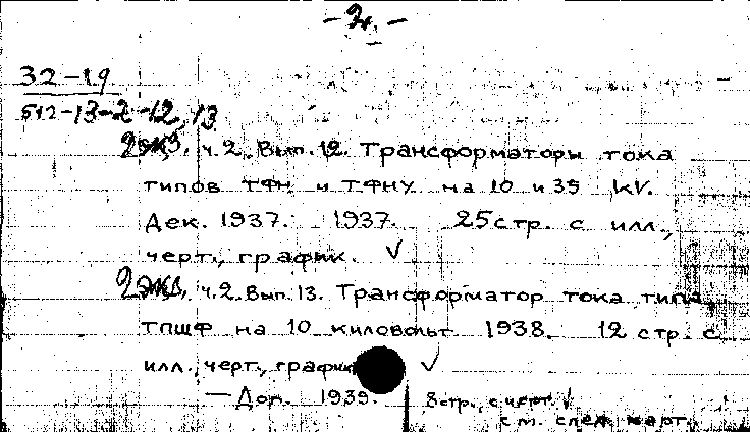 - 2. -
32-19
512-13-2-12,13
2 экз. ч.2. Вып.12. Трансформаторы тока
типов ТФН и ТФНУ на 10 и 35 kV.
Дек. 1937. 1937. 25 стр. с илл.,
черт., график. √
2 экз. ч.2. Вып.13. Трансформатор тока типа
ТПШФ на 10 киловольт 1938. 12 стр. с
илл., черт., график. √
— Доп. 1939. 8 стр., с черт. √
см. след. карт.